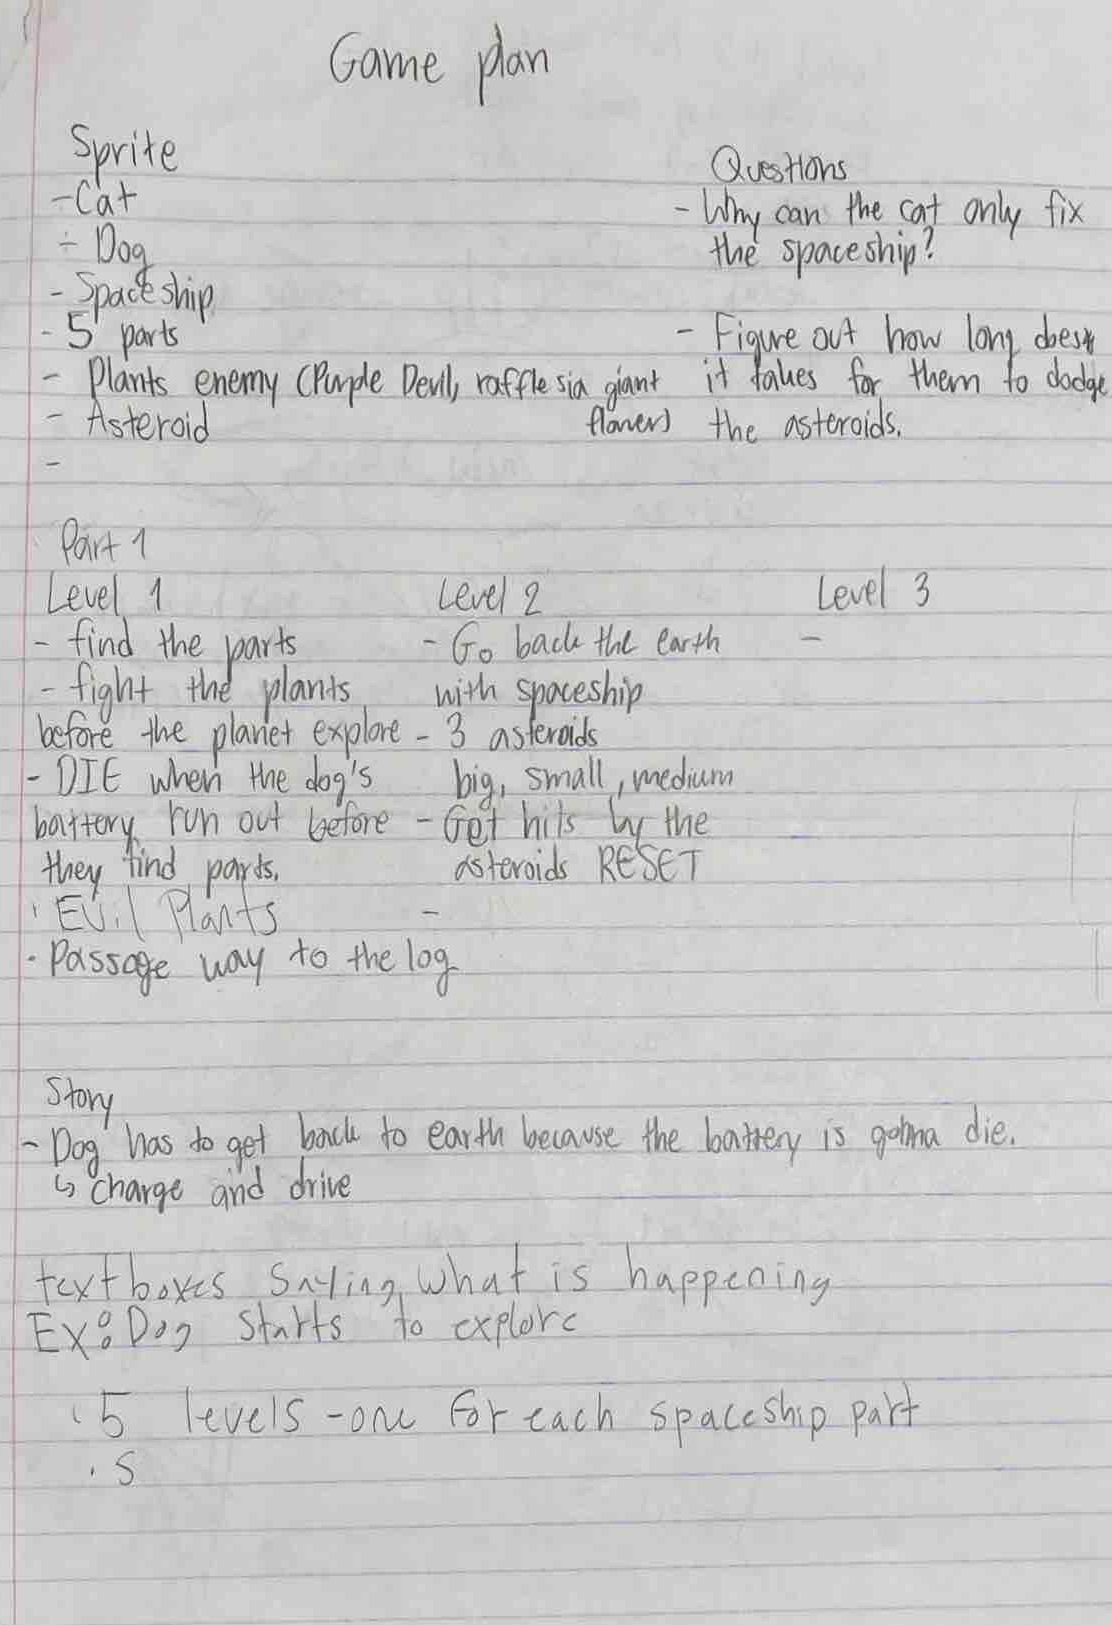 Game plan
Sprite
- Cat
- Dog
- Spaceship
- 5 parts
- Plants enemy (Purple Devil, rafflesia giant
flower)
- Asteroid
-
Questions
- Why can the cat only fix
the spaceship?
- Figure out how long does
it takes for them to dodge
the asteroids.
Part 1
Level 1
- find the parts
- fight the plants
before the planet explore
- DIE when the dog's
battery run out before
they find parts.
· Evil Plants
· Passage way to the log
Level 2
- Go back the earth
with spaceship
- 3 asteroids
big, small, medium
- Get hits by the
asteroids RESET
-
Level 3
-
Story
- Dog has to get back to earth because the battery is gonna die.
↳ charge and drive
textboxes saying what is happening
Ex: Dog starts to explore
· 5 levels - one for each spaceship part
· S